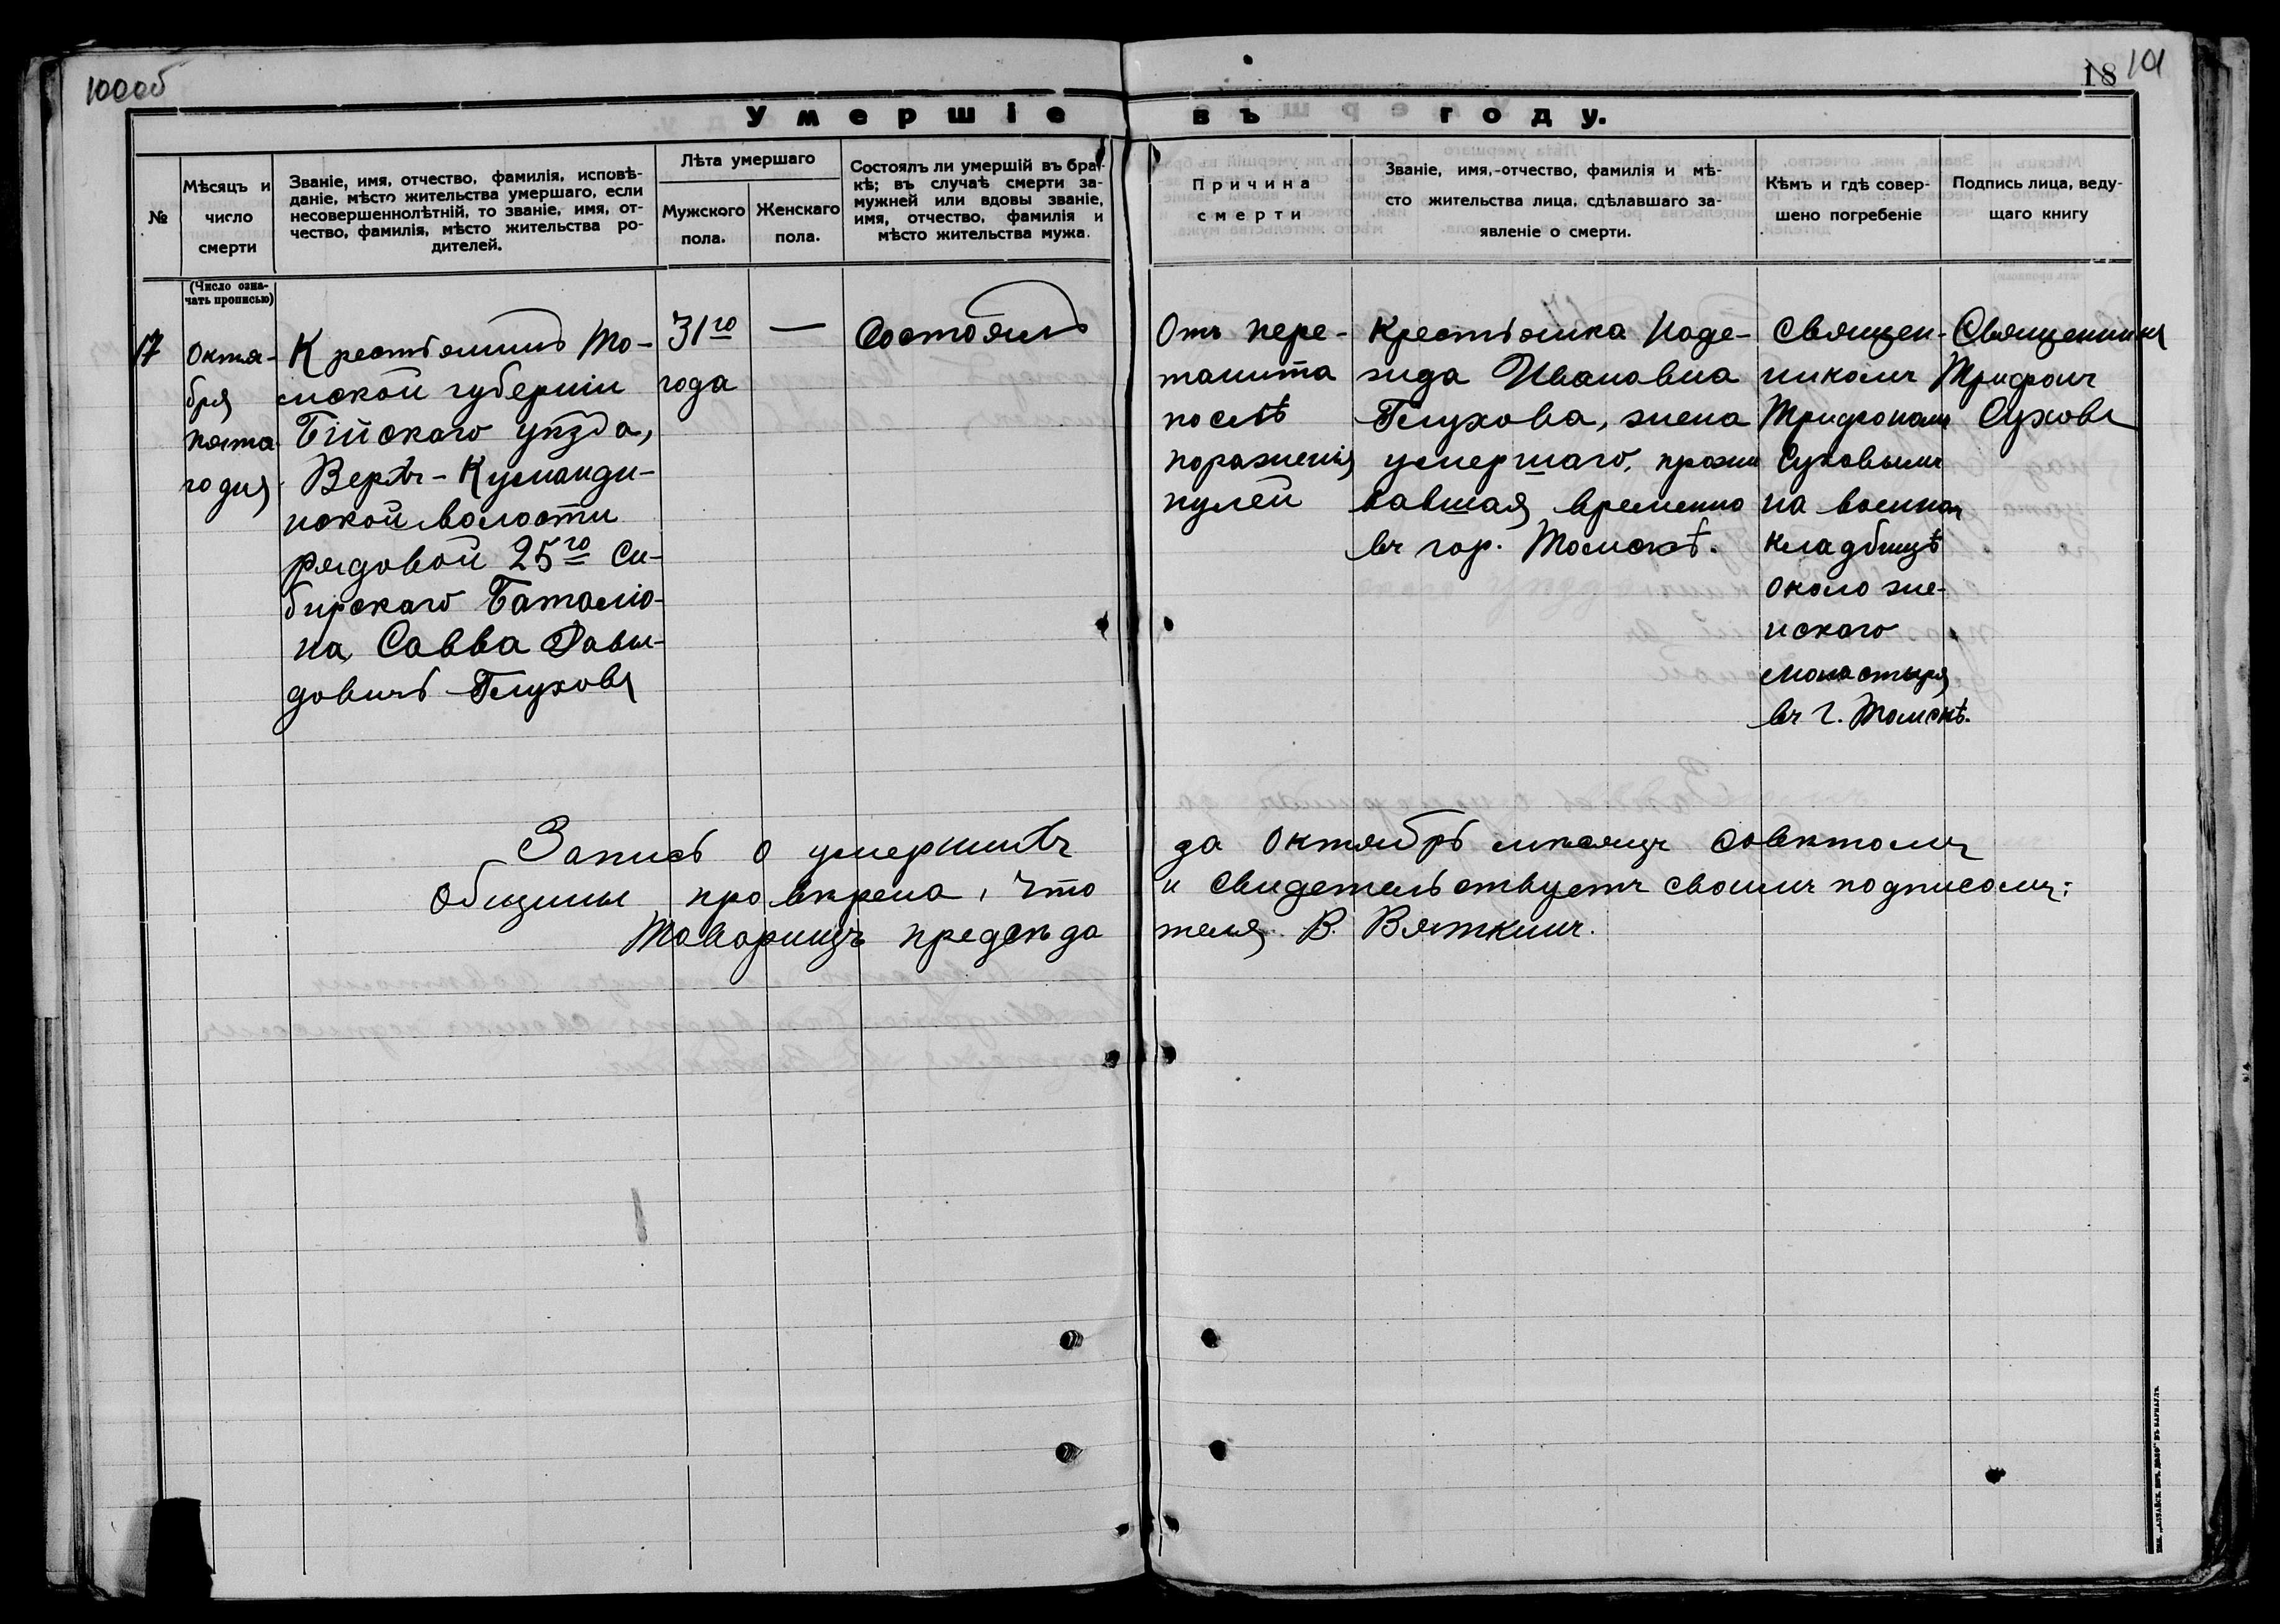 100об
18 101
Умершіе въ году.
№
Мѣсяцъ и
число
смерти
(Число озна-
чать прописью)
Званіе, имя, отчество, фамилія, исповѣ-
даніе, мѣсто жительства умершаго, если
несовершеннолѣтній, то званіе, имя, от-
чество, фамилія, мѣсто жительства ро-
дителей.
Лѣта умершаго
Мужского
пола.
Женскаго
пола.
Состоялъ ли умершій въ бра-
кѣ; въ случаѣ смерти за-
мужней или вдовы званіе,
имя, отчество, фамилія и
мѣсто жительства мужа.
Причина
смерти
Званіе, имя,-отчество, фамилія и мѣ-
сто жительства лица, сдѣлавшаго за-
явленіе о смерти.
Кѣмъ и гдѣ совер-
шено погребеніе
Подпись лица, веду-
щаго книгу
17
Октя-
бря
пята-
го дня
Крестьянинъ То-
мской губерніи
Бійскаго уѣзда,
Верхъ-Куманди-
нской волости
рядовой 25го Си-
бирскаго Баталіо-
на, Савва Давы-
довичъ Глуховъ
31го
года
—
Состоялъ
Отъ пере-
танита
послѣ
пораженія
пулей
Крестьянка Наде-
жда Ивановна
Глухова, жена
умершаго, прожи
вавшая временно
въ гор. Томскѣ.
Священ-
никомъ
Трифономъ
Суховымъ
на военном
кладбищѣ
около же-
нскаго
монастыря
въ г. Томскѣ.
Священникъ
Трифонъ
Суховъ
Запись о умершихъ за Октябрь мѣсяцъ совѣтомъ
Общины провѣрена, что и свидетельствуетъ своимъ подписомъ:
Товарищъ предсѣдателя В. Вяткинъ.
ТИП. „АЛТАЙСК. ПЕЧ. ДѢЛО" ВЪ БАРНАУЛѢ.